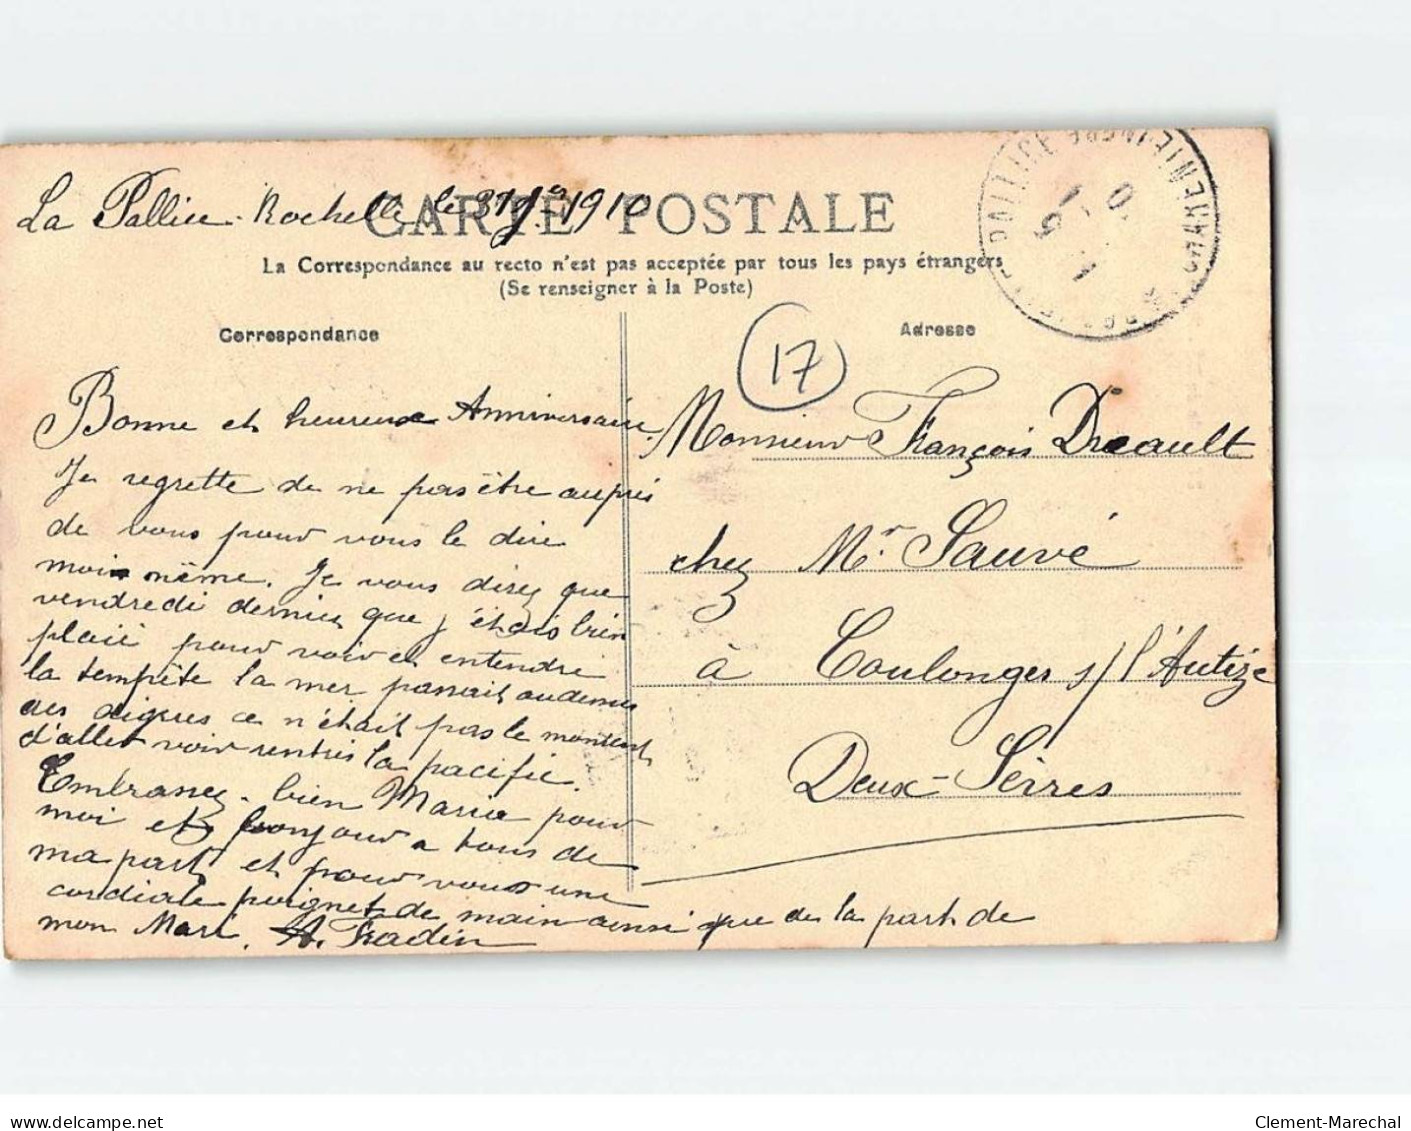 La Pallice-Rochelle le 31 1910
CARTE POSTALE
La Correspondance au recto n'est pas acceptée par tous les pays étrangers
(Se renseigner à la Poste)
PALLICE CHARENTE-INFRE
Correspondance
Adresse
17
Bonne et heureuse Anniversaire.
Je regrette de ne pas être auprès
de vous pour vous le dire
moi-même. Je vous direz que
vendredi dernier que j'étais bien
placé pour voir et entendre
la tempête la mer passait audessus
des digues ce n'était pas le moment
d'aller voir rentrer la pacific.
Embrassez-bien Maria pour
moi et bonjour a tous de
ma part et pour vous une
cordiale poignet de main ainsi que de la part de
mon Mari. A. Fradin
Monsieur François Dreault
chez Mr. Sauvé
à Coulonges s/ l'Autize
Deux-Sèvres
Clement-Marechal
www.delcampe.net